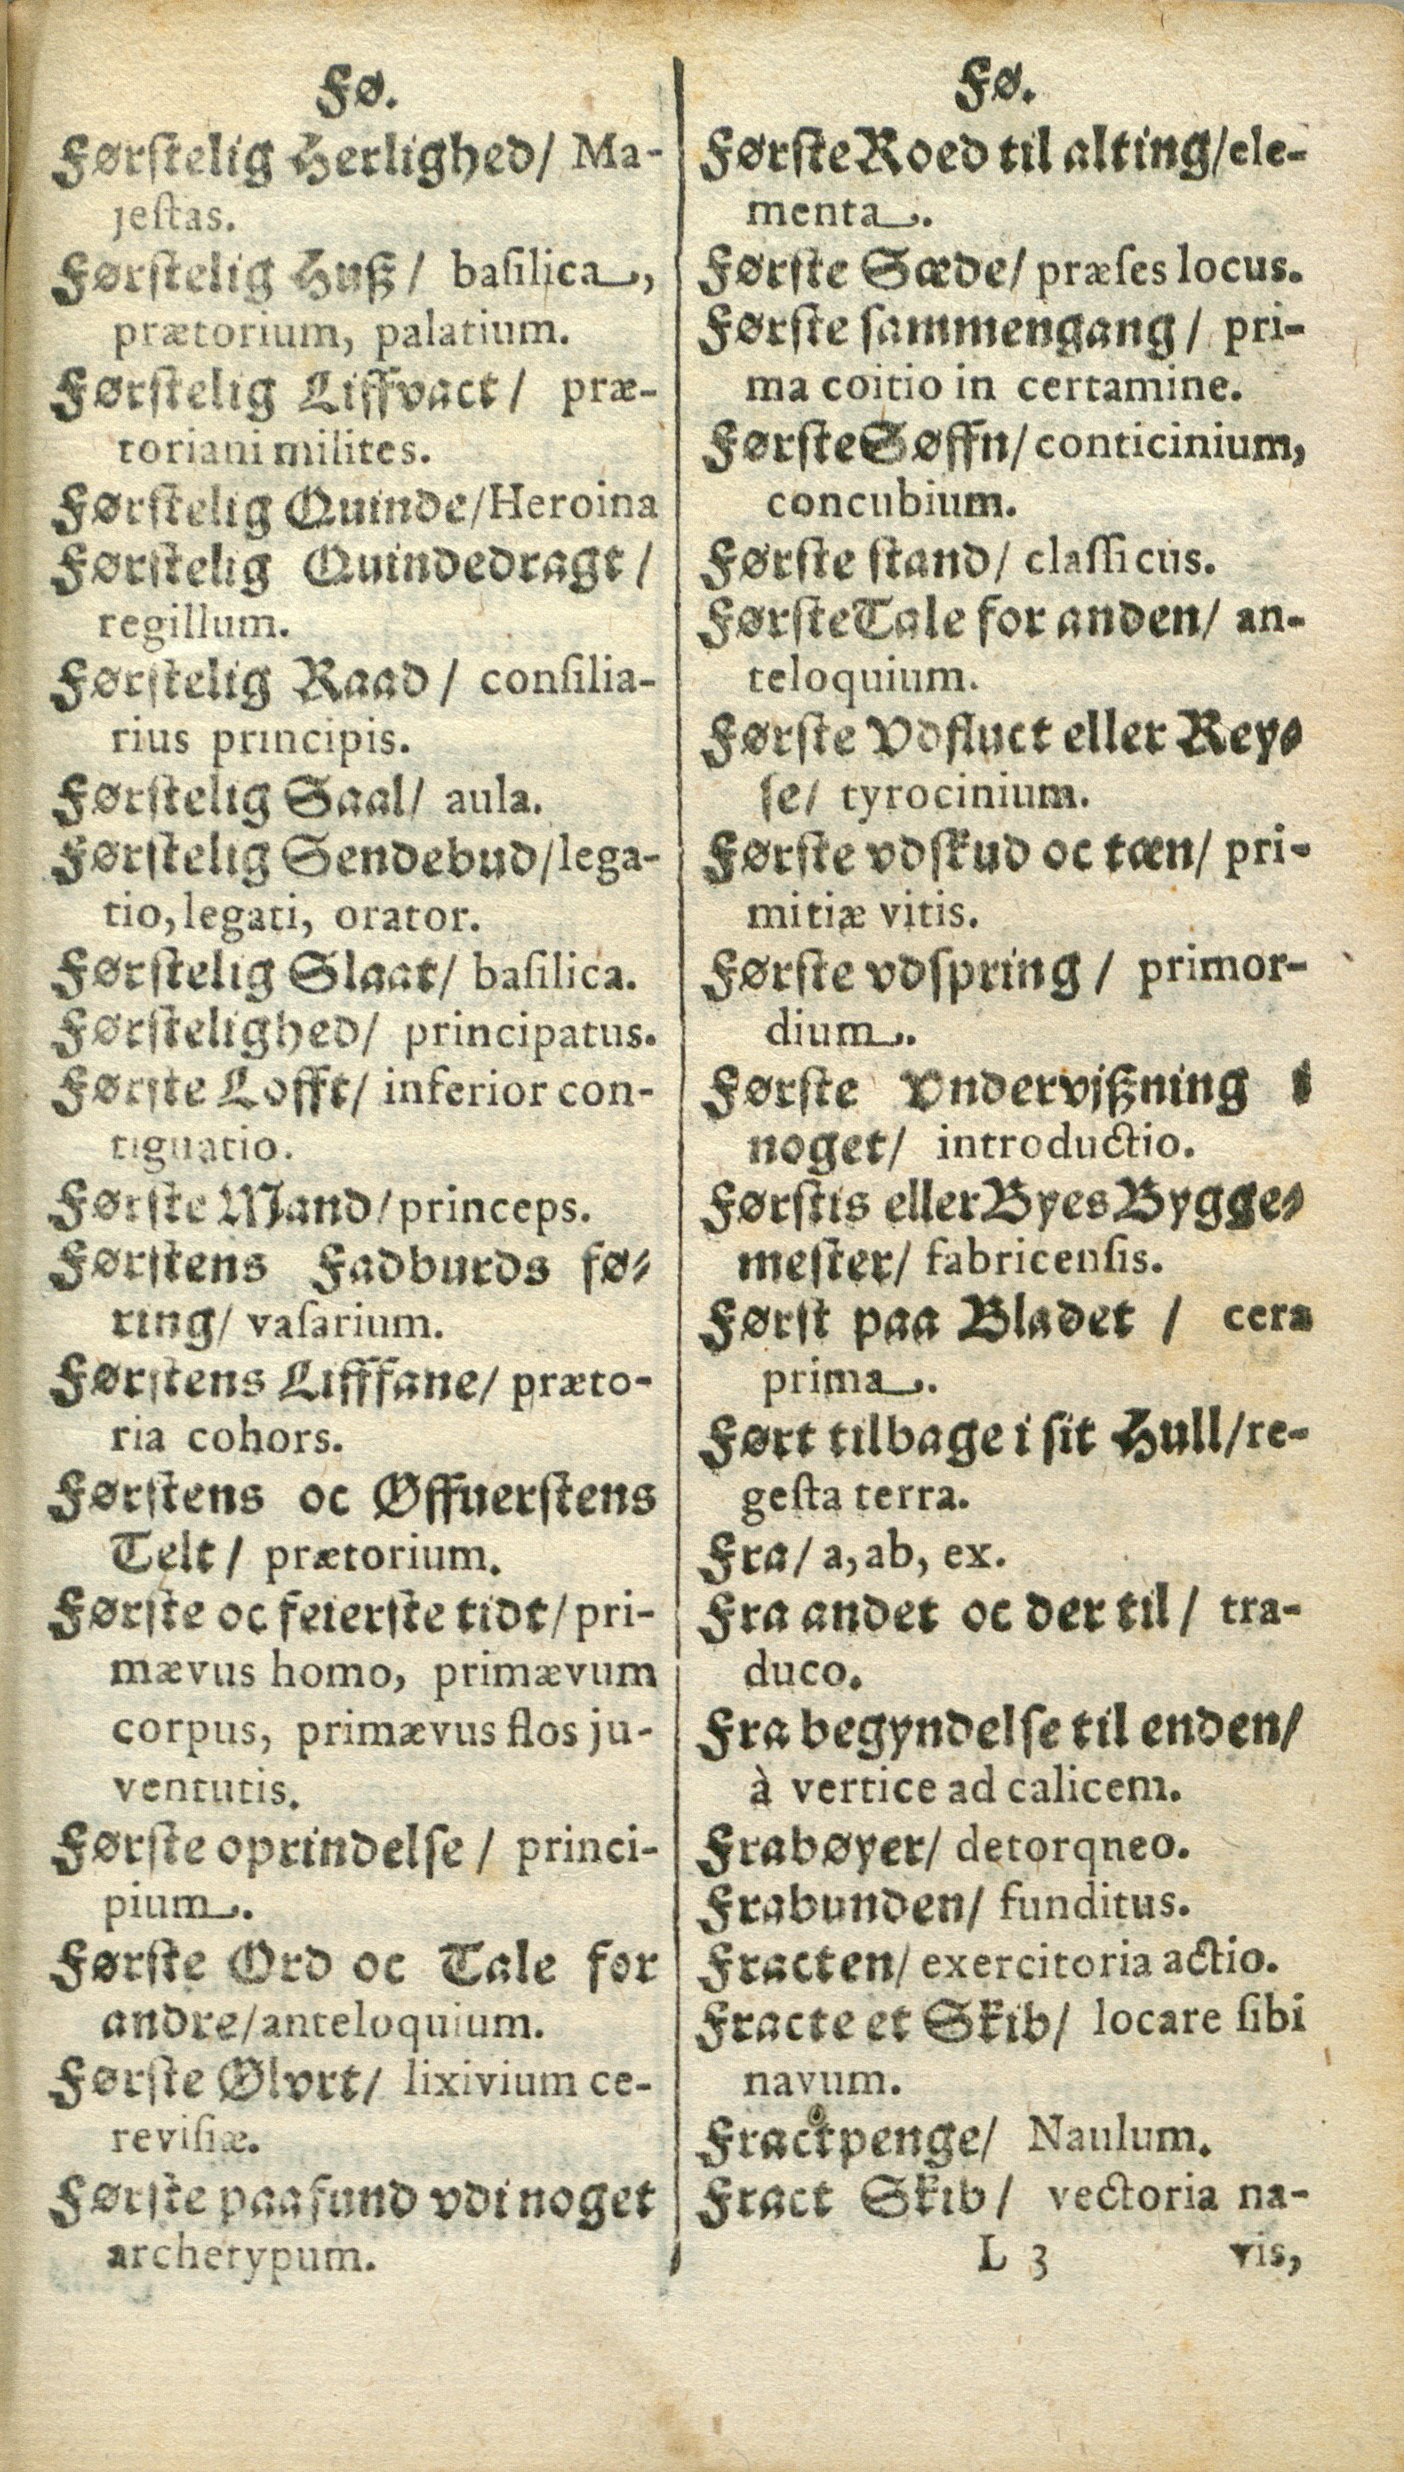 Fø.
Førstelig Herlighed/ Ma-
jestas.
Førstelig Huß/ basilica,
prætorium, palatium.
Førstelig Liffvact/ præ-
toriani milites.
Førstelig Quinde/Heroina
Førstelig Quindedragt/
regillum.
Førstelig Raad/ consilia-
rius principis.
Førstelig Saal/ aula.
Førstelig Sendebud/lega-
tio, legati, orator.
Førstelig Slaat/ basilica.
Førstelighed/ principatus.
Første Lofft/ inferior con-
tignatio.
Første Mand/princeps.
Førstens Fadburds fø-
ring/ vasarium.
Førstens Lifffane/ præto-
ria cohors.
Førstens oc Øffuerstens
Telt/ prætorium.
Første oc feierste tidt/pri-
mævus homo, primævum
corpus, primævus flos ju-
ventutis.
Første oprindelse/ princi-
pium.
Første Ord oc Tale for
andre/anteloquium.
Første Ølvrt/ lixivium ce-
revisiæ.
Første paafund vdi noget
archetypum.
Fø.
Første Roed til alting/ele-
menta.
Første Sæde/ præses locus.
Første sammengang/ pri-
ma coitio in certamine.
Første Søffn/ conticinium,
concubium.
Første stand/ classicus.
Første Tale for anden/ an-
teloquium.
Første Vdfluct eller Rey-
se/ tyrocinium.
Første vdskud oc tæn/ pri-
mitiæ vitis.
Første vdspring/ primor-
dium.
Første Vndervißning i
noget/ introductio.
Førstis eller Byes Bygge-
mester/ fabricensis.
Først paa Bladet/ cera
prima.
Ført tilbage i sit Hull/re-
gesta terra.
Fra/ a, ab, ex.
Fra andet oc der til/ tra-
duco.
Fra begyndelse til enden/
à vertice ad calicem.
Frabøyer/ detorqneo.
Frabunden/ funditus.
Fracten/ exercitoria actio.
Fracte et Skib/ locare sibi
navum.
Fractpenge/ Naulum.
Fract Skib/ vectoria na-
L 3 vis,